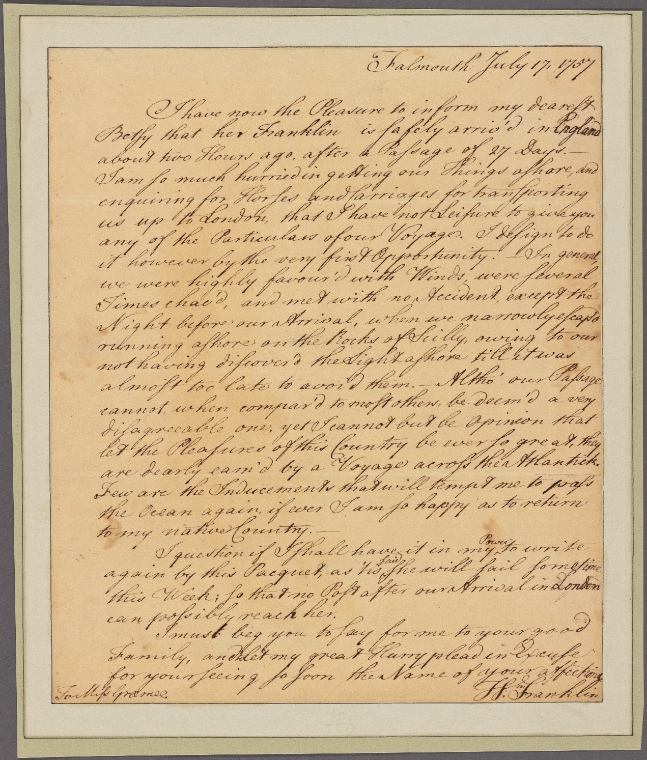 Falmouth July 17, 1757
I have now the Pleasure to inform my dearest
Betsy that her Franklin is safely arriv'd in England
about two Hours ago, after a Passage of 27 Days.—
I am so much hurried in getting our Things ashore, and
enquiring for Horses and Carriages for transporting
us up to London, that I have not Leisure to give you
any of the Particulars of our Voyage. I design to do
it however by the very first Opportunity. In general
we were highly favour'd with Winds, were several
Times chac'd, and met with no Accident, except the
Night before our Arrival, when we narrowly escap'd
running ashore on the Rocks of Scilly, owing to our
not having discover'd the Light ashore till it was
almost too late to avoid them.— Altho' our Passage
cannot, when compar'd to most others, be deem'd a very
disagreeable one, yet I cannot but be Opinion that
let the Pleasures of this Country be ever so great, they
are dearly earn'd by a Voyage across the Atlantick.
Few are the Inducements that will tempt me to pass
the Ocean again, if ever I am so happy as to return
to my native Country.—
I question if I shall have it in my Power to write
again by this Pacquet, as 'tis said she will sail sometime
this Week; so that no Post after our Arrival in London
can possibly reach her.
I must beg you to say for me to your good
Family, and let my great Hurry plead in Excuse
for your seeing so soon the Name of your affectionate
Wm. Franklin
To Miss Graeme.